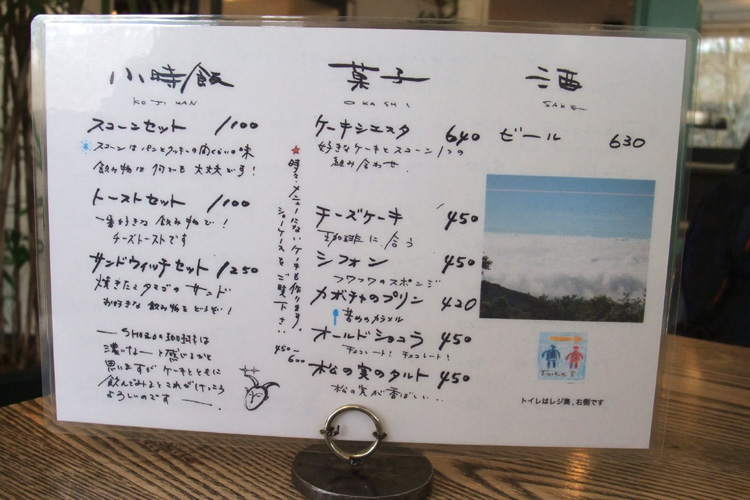 小時飯
KOJIHAN
スコーンセット 1100
スコーンはパンとクッキーの間くらいの味
飲み物は何でも大丈夫です!
トーストセット 1100
一番好きな飲み物で!
チーズトーストです
サンドウィッチセット 1250
焼きたてタマゴのサンド
お好きな飲み物をどうぞ!
濃いなぁーと感じるかと
思いますがケーキとともに
飲んでみるとこれがけっこう
よろしいのです
菓子
OKASHI
ケーキシエスタ 640
好きなケーキとスコーン1つの
組み合わせ.
★時々メニューにないケーキも作ります。
ショーケースをご覧下さい.
450~
600
チーズケーキ 450
珈琲に合う
シフォン 450
フワフワのスポンジ
カボチャのプリン 420
苦めのカラメル
オールドショコラ 450
チョコレート! チョコレート!
松の実のタルト 450
松の実が香ばしい..
酒
SAKE
ビール 630
Toilet
トイレはレジ奥、右側です